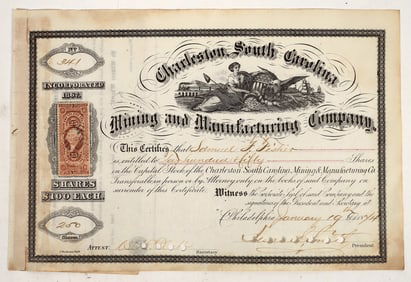 No
241
INCORPORATED
1867.
SHARES
$100 EACH.
250
Charleston, South Carolina
Mining and Manufacturing Company.
This Certifies that Samuel F. Fisher
is entitled to Two hundred fifty Shares
in the Capital Stock of the Charleston South Carolina Mining & Manufacturing Co.
Transferable in person or by Attorney only on the books of said Company on
surrender of this Certificate. Witness the corporate Seal of said Company and the
signatures of the President and Secretary at
Philadelphia January 19th
ATTEST
Secretary
President